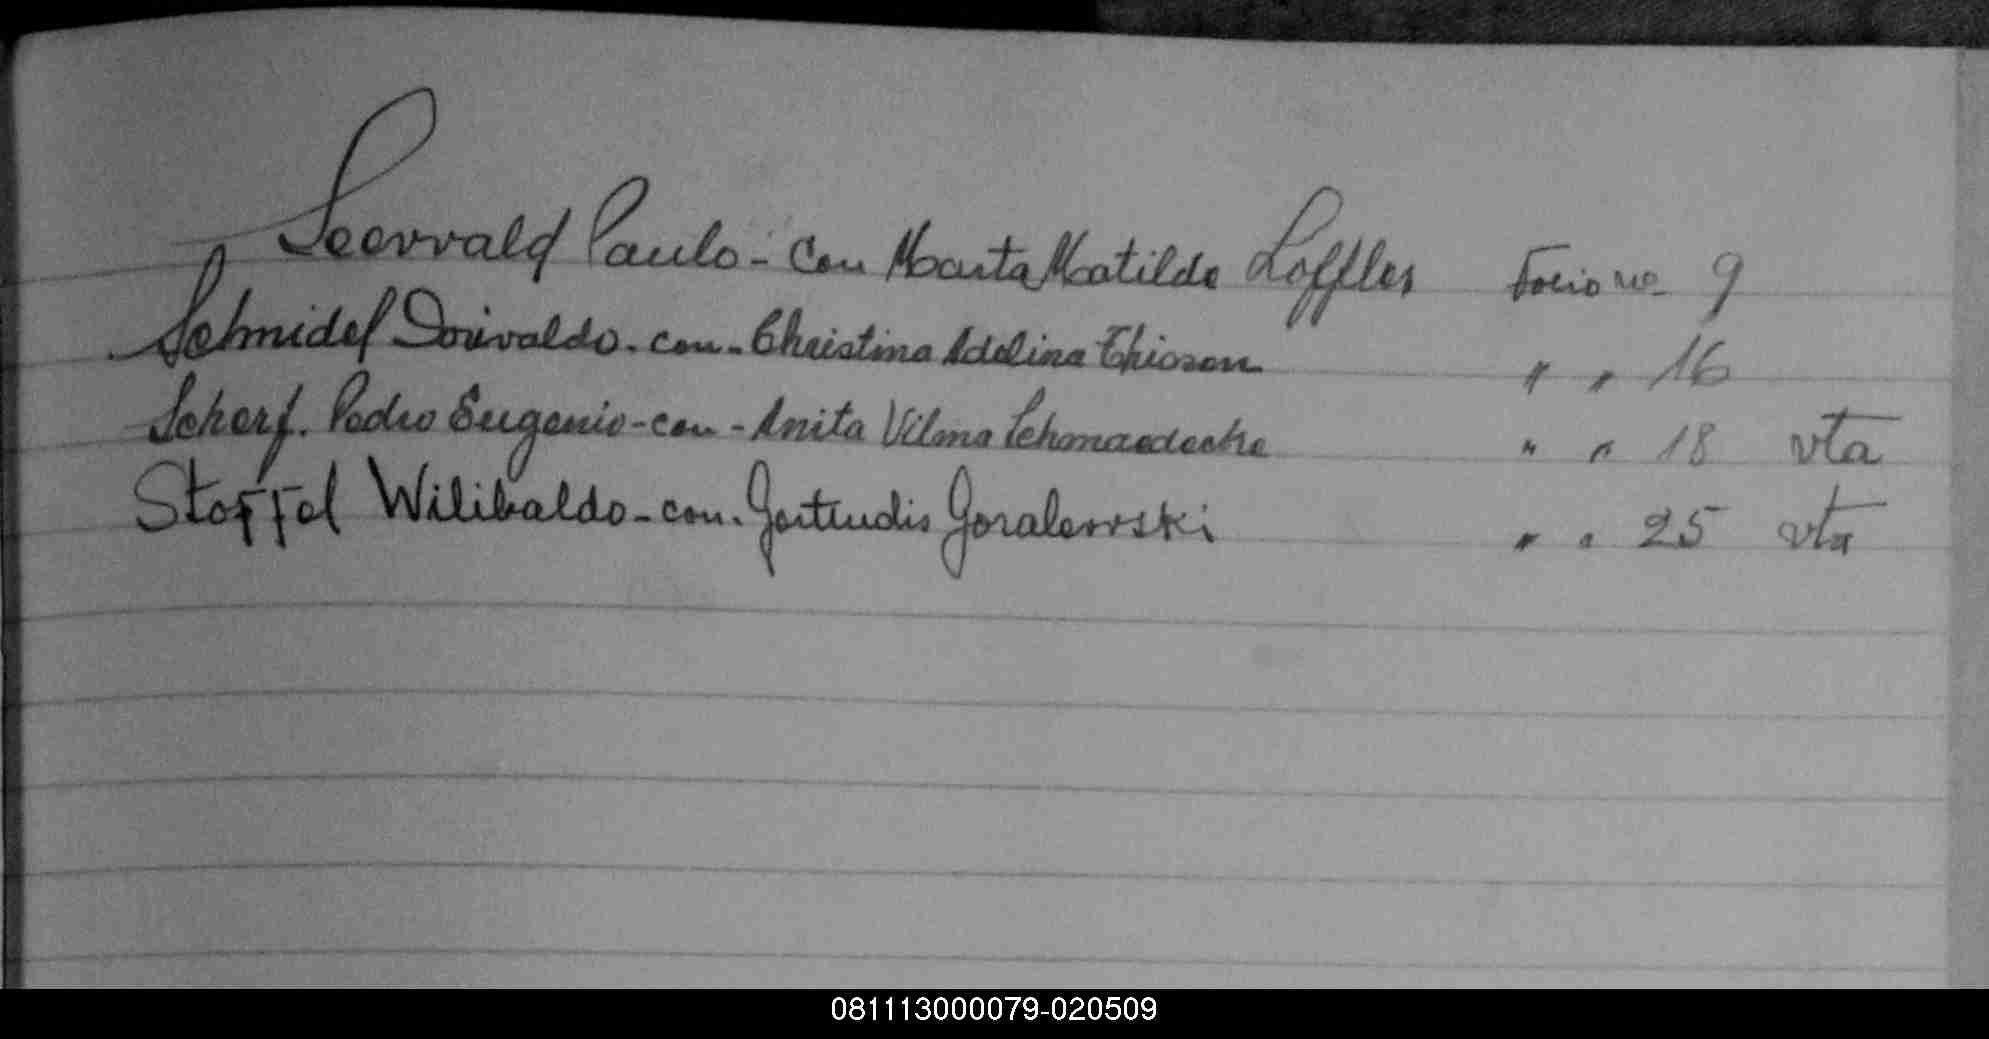 Seewald Paulo - Con Marta Matilde Loffler Folio no 9
Schmidel Dorivaldo - con - Christina Adelina Thiesen " " 16
Scherf. Pedro Eugenio - con - Anita Vilma Schmaedecke " " 18 vta
Stoffel Wilibaldo - con - Gertrudis Goralewski " " 25 vta
081113000079-020509